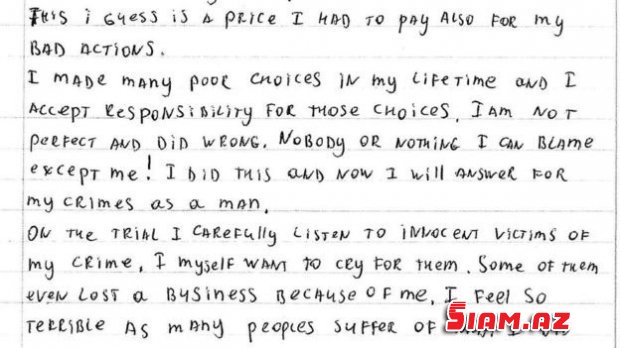 THIS i GUESS IS A PRICE I HAD TO PAY ALSO FOR my
BAD ACTIONS.
I MADE MANY POOR CHOICES IN MY LIFETIME AND I
ACCEPT RESPONSIBILITY FOR THOSE CHOICES, I AM NOT
PERFECT AND DID WRONG. NOBODY OR NOTHING I CAN BLAME
except me! I DID THIS AND NOW I WILL ANSWER FOR
MY CRIMES as a man.
ON THE TRIAL I CAREFULLY LISTEN TO INNOCENT VICTIMS OF
MY CRIME, I MYSELF WANT TO CRY FOR THEM. SOME OF THEM
EVEN LOST a BUSINESS BECAUSE OF ME, I FEEL SO
TERRIBLE AS MANY PEOPLES SUFFER OF
SIAM.AZ